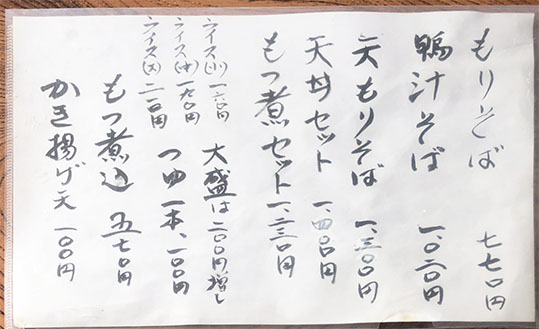 もりそば 七七〇円
鴨汁そば 一、〇二〇円
天もりそば 一、三〇〇円
天丼セット 一、四〇〇円
もつ煮セット 一、二三〇円
大盛は二〇〇円増し
つゆ一本、一〇〇円
ライス(小) 一六〇円
ライス(中) 一九〇円
ライス(大) 二一〇円
もつ煮込 五七〇円
かき揚げ天 一〇〇円